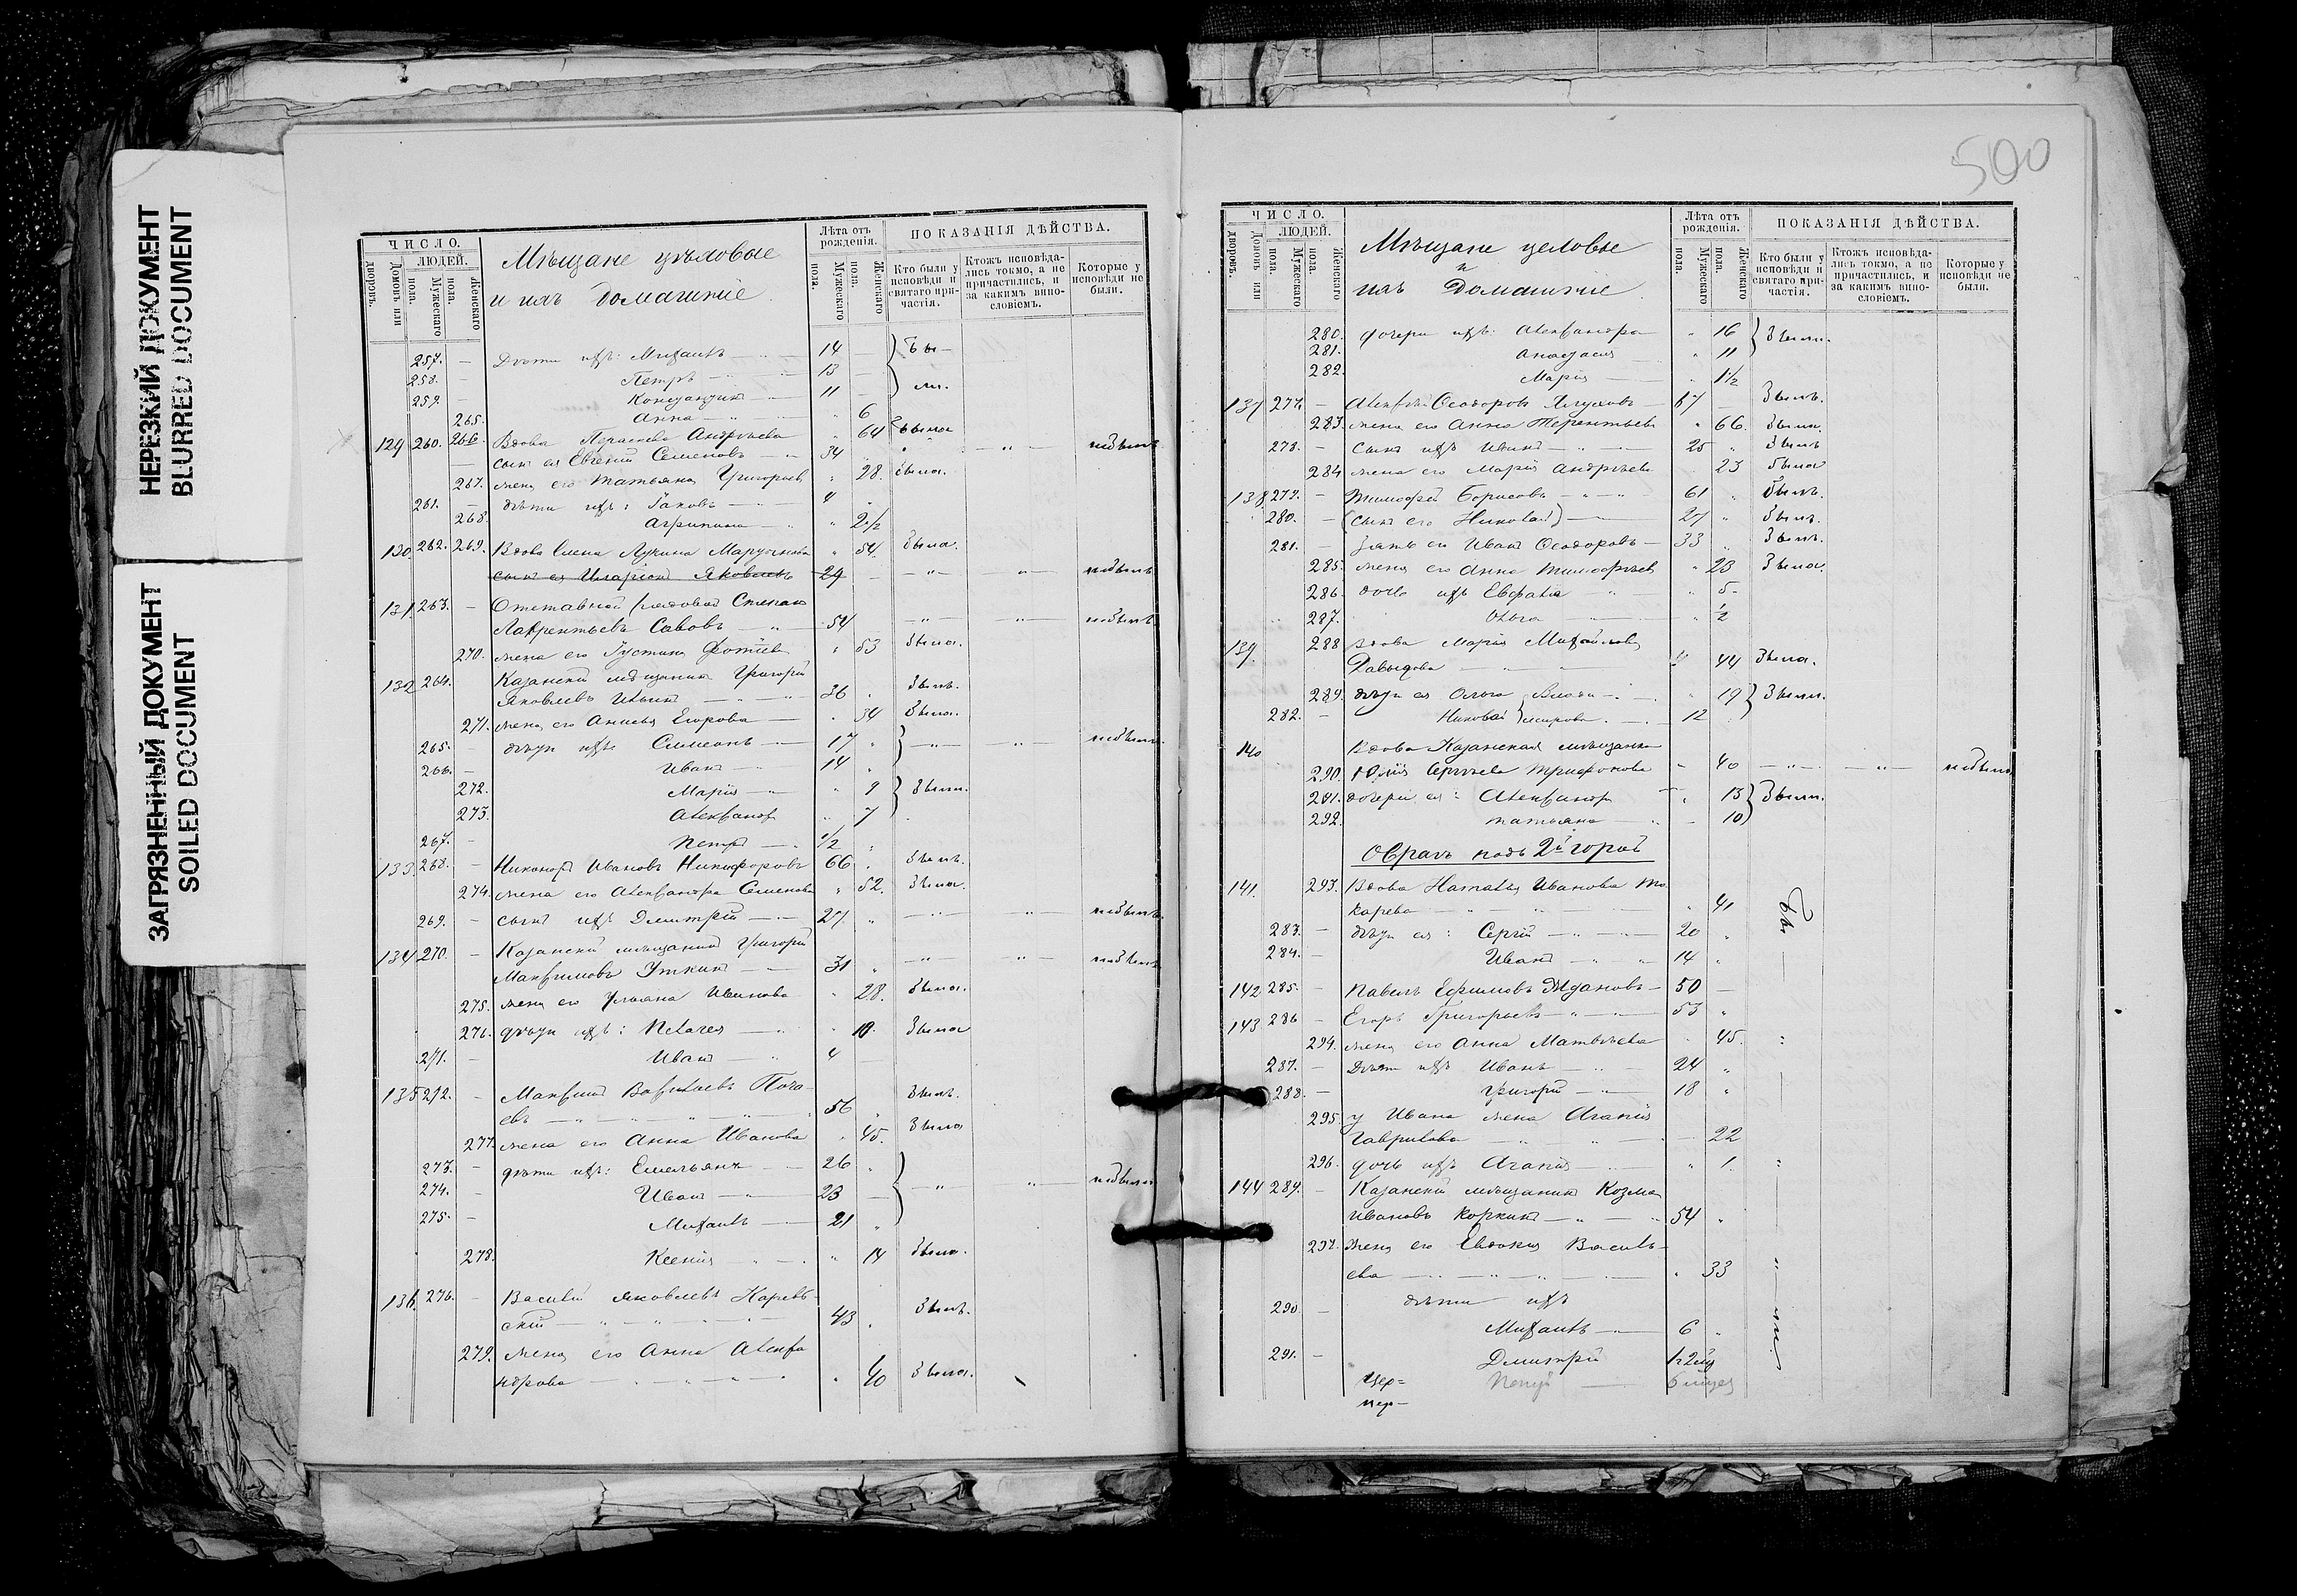 НЕРЕЗКИЙ ДОКУМЕНТ
BLURRED DOCUMENT
ЗАГРЯЗНЕННЫЙ ДОКУМЕНТ
SOILED DOCUMENT
ЧИСЛО.
ЛЮДЕЙ.
Домовъ или дворовъ.
Мужескаго пола.
Женскаго пола.
Мѣщане цѣховые
и ихъ домашніе
Лѣта отъ рожденія.
Мужескаго пола.
Женскаго пола.
ПОКАЗАНІЯ ДѢЙСТВА.
Кто были у исповѣди и святаго причастія.
Ктожъ исповѣдались токмо, а не причастились, и за какимъ винословіемъ.
Которые у исповѣди не были.
257. — Дѣти ихъ: Михаилъ 14 Бы-
258. — Петръ 13 —
259. — Константинъ 11 — ли.
265. Анна 6
129 260. 266. Вдова Андреева 64 была
сынъ ея Евгеній Семеновъ 34 небылъ
267. жена его Татьяна Григорьев 28. была.
261. — дѣти ихъ: Іаковъ 4
268. Агрипина 2 1/2
130 262. 269. Вдова Елена Лукина 54. была.
сынъ ея Иларіонъ Яковлевъ 29 — небылъ
131. 263. — Отставной рядовой Степанъ
Лаврентьевъ Савовъ 54 небылъ
270. жена его Іустина Фотіев 53 была.
132 264. Казанскій мѣщанинъ Григорій
Яковлевъ Ильинъ 36 былъ.
271. жена его Анисья Егорова 34 была.
265. — дѣти ихъ Симеонъ 17 небыли.
266. — Иванъ 14
272. Марія 9 были.
273. Александ 7
267. — Петръ 1/2
133. 268. — Никаноръ Ивановъ Никифоровъ 66 былъ.
274. жена его Александра Семенова 52. была.
269. — сынъ ихъ Димитрій 27. небылъ.
134 270. — Казанскій мѣщанинъ Григорій
Максимовъ Уткинъ 31 небылъ
275. жена его Ульяна Иванова 28. была.
276. дѣти ихъ: Пелагея 10. была
271. — Иванъ 4
135 272. — Максимъ Васильевъ
евъ 56 былъ.
277. жена его Анна Иванова 45. была
273. — дѣти ихъ: Емельянъ 26
274. — Иванъ 23 — небыли
275. — Михаилъ 21
278. Ксенія 14 была.
136. 276. — Василій Яковлевъ
скій 43 былъ.
279. жена его Анна Алекса
ндрова 40 была.
500
ЧИСЛО.
ЛЮДЕЙ.
Домовъ или дворовъ.
Мужескаго пола.
Женскаго пола.
Мѣщане цеховые
и
ихъ домашніе
Лѣта отъ рожденія.
Мужескаго пола.
Женскаго пола.
ПОКАЗАНІЯ ДѢЙСТВА.
Кто были у исповѣди и святаго причастія.
Ктожъ исповѣдались токмо, а не причастились, и за какимъ винословіемъ.
Которые у исповѣди не были.
280. дочери ихъ: Александра 16 были.
281. Анастасія 11
282. Марія 1 1/2
137 277. — Алексѣй Ѳеодоровъ 67 — былъ.
283. жена его Анна Терентьев 66. была.
278. — сынъ ихъ 25 былъ
284 жена его Марія Андреев 23 была
138 279. — Тимофей Борисовъ 61 былъ.
280. — (сынъ его Николай) 27 былъ.
281. — зять его Иванъ Ѳеодоровъ 33 былъ.
285. жена его Анна Тимофѣев 23 была.
286. дочь ихъ 5
287. Ольга 1/2
139. 288 Вдова Марія Михайлова
Давыдова 44 была.
289. дѣти ея Ольга Влади- 19 были.
282. — Николай мирова 12
140 Вдова Казанская мѣщанка
290. Юлія Сергѣева Трифонова 40 небыла
291. дочери ея: Александр 13 были.
292. Татьяна 10
Оврагъ подъ 2й горой
141. 293. Вдова Наталья Иванова То
карева 41 бы
283. — дѣти ея: Сергій 20
284. — Иванъ 14
142 285. — Павелъ Ефимовъ Ждановъ 50 —
143 286 — Егоръ Григорьевъ 53
294. жена его Анна Матвѣева 45.
287. — Дѣти ихъ Иванъ 24
288. — Григорій 18
295. у Ивана жена Агапія
Гаврилова 22
296. дочь ихъ Агапія 1.
144 289. — Казанскій мѣщанинъ Козма
Ивановъ Коркинъ 54
297. жена его Евдокія Василь-
ева 33
290. — дѣти ихъ
Михаилъ 6 ли.
291. — Димитрій